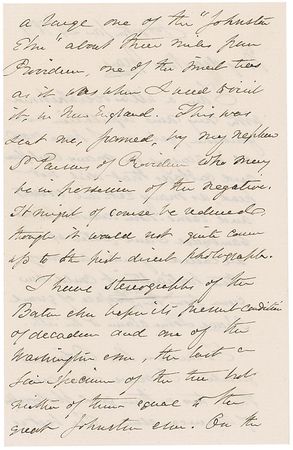 a large one of the "Johnston
Elm" about three miles from
Providence, one of the finest trees
as it was when I used to visit
it, in New England. This was
sent me, framed, by my nephew
Dr Parsons of Providence who may
be in possession of the negative.
It might of course be reduced
though it would not quite come
up to the best direct photographs.
I have stereographs of the
Boston elm before its present condition
of decadence and one of the
Washington elm, the last a
fine specimen of the tree but
neither of them equal to the
great Johnston elm. On the